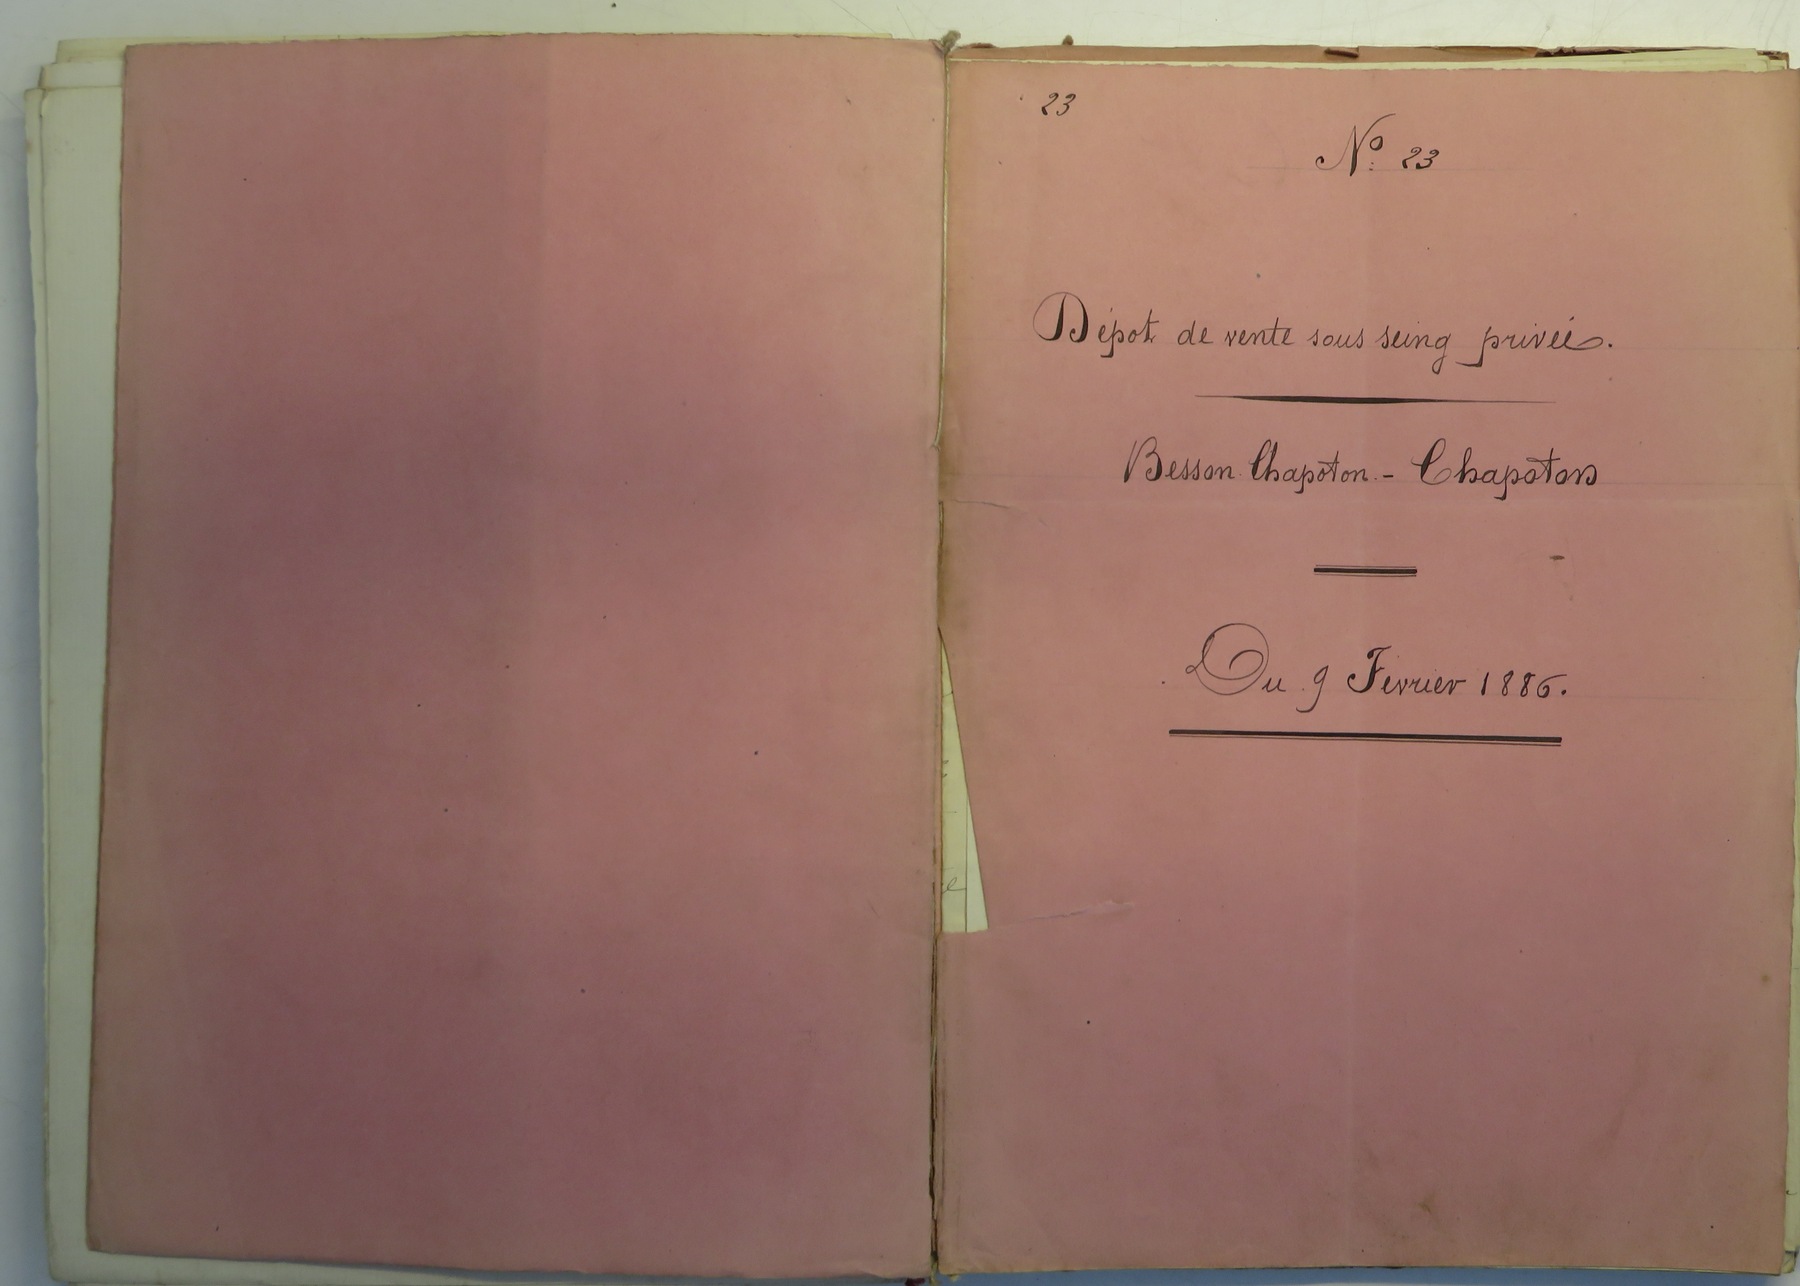 23
No 23
Dépot de vente sous seing privée.
Besson Chapoton - Chapoton
Du 9 Février 1886.